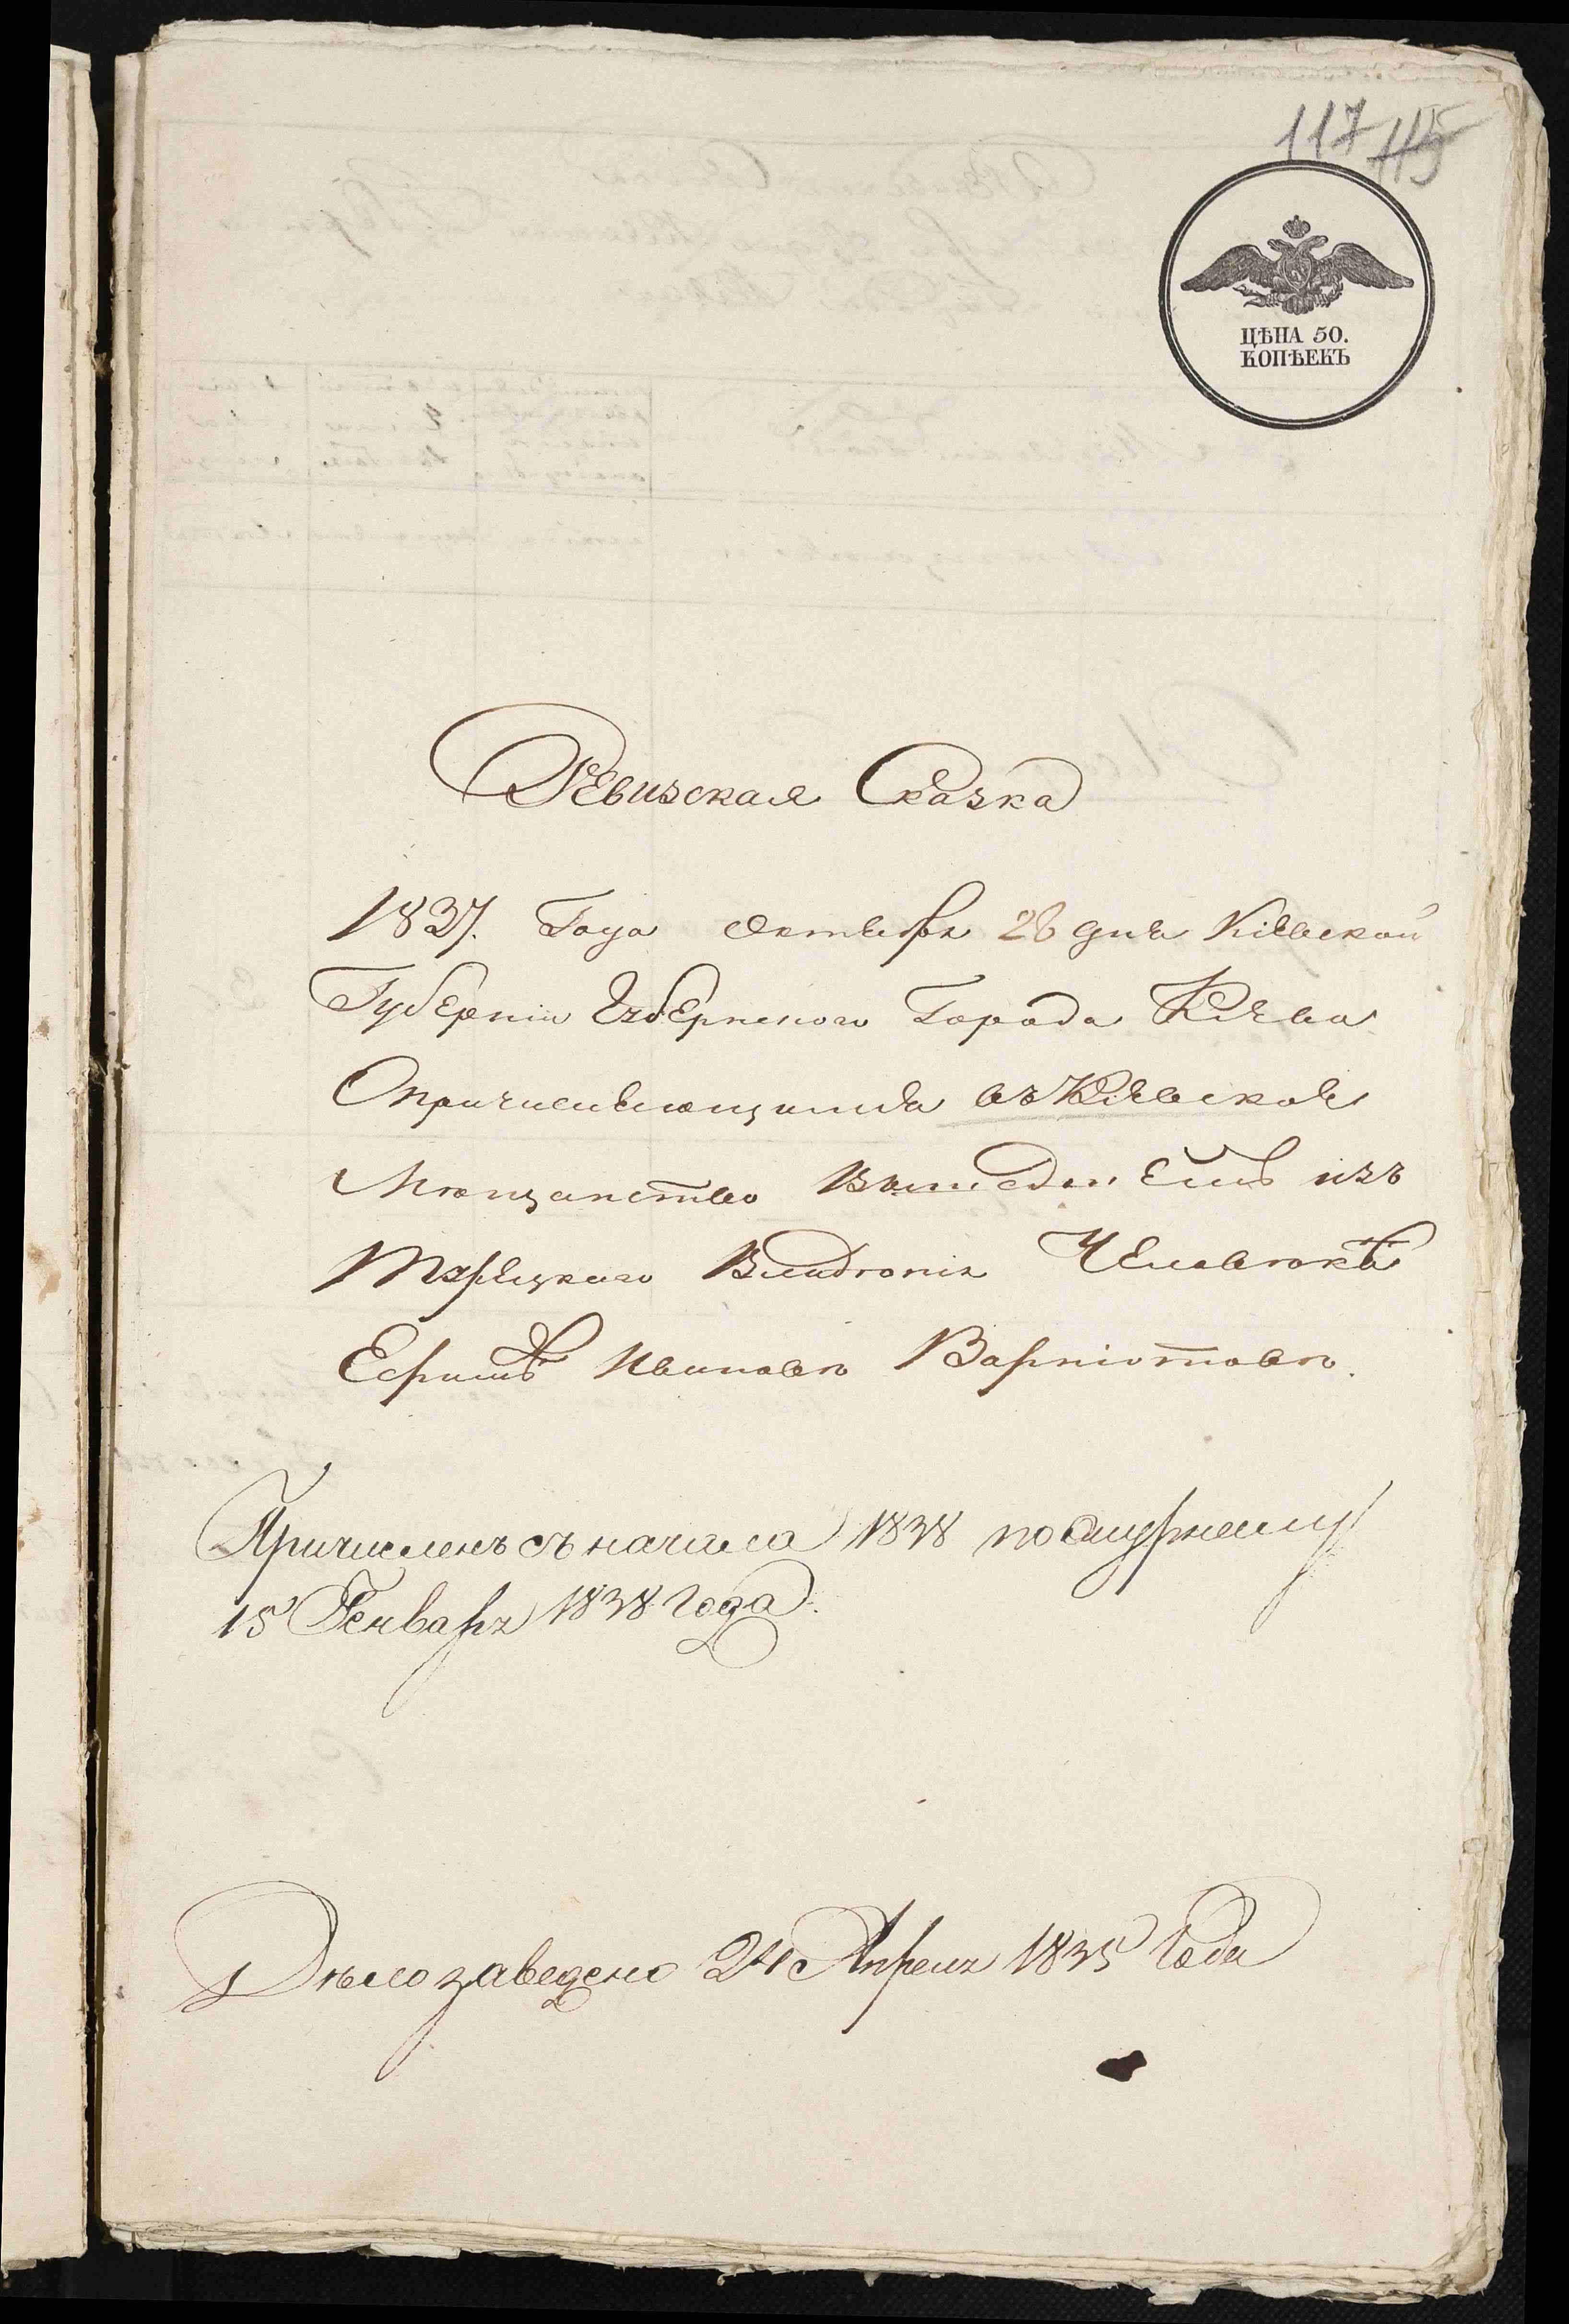 117 115
ЦѢНА 50.
КОПѢЕКЪ
Ревизская Сказка
1837. Года Октября 28 дня Кіевской
Губерніи Губернского Города Кіева
О причисляющимся въ Кіевское
Мѣщанство вышедшемъ изъ
Турецкаго Владѣнія Человѣкѣ
Ефимѣ Ивановѣ
Причисленъ съ начала 1838 по
15 Генваря 1838 года
Дѣло заведено 24 Апреля 1835 Года